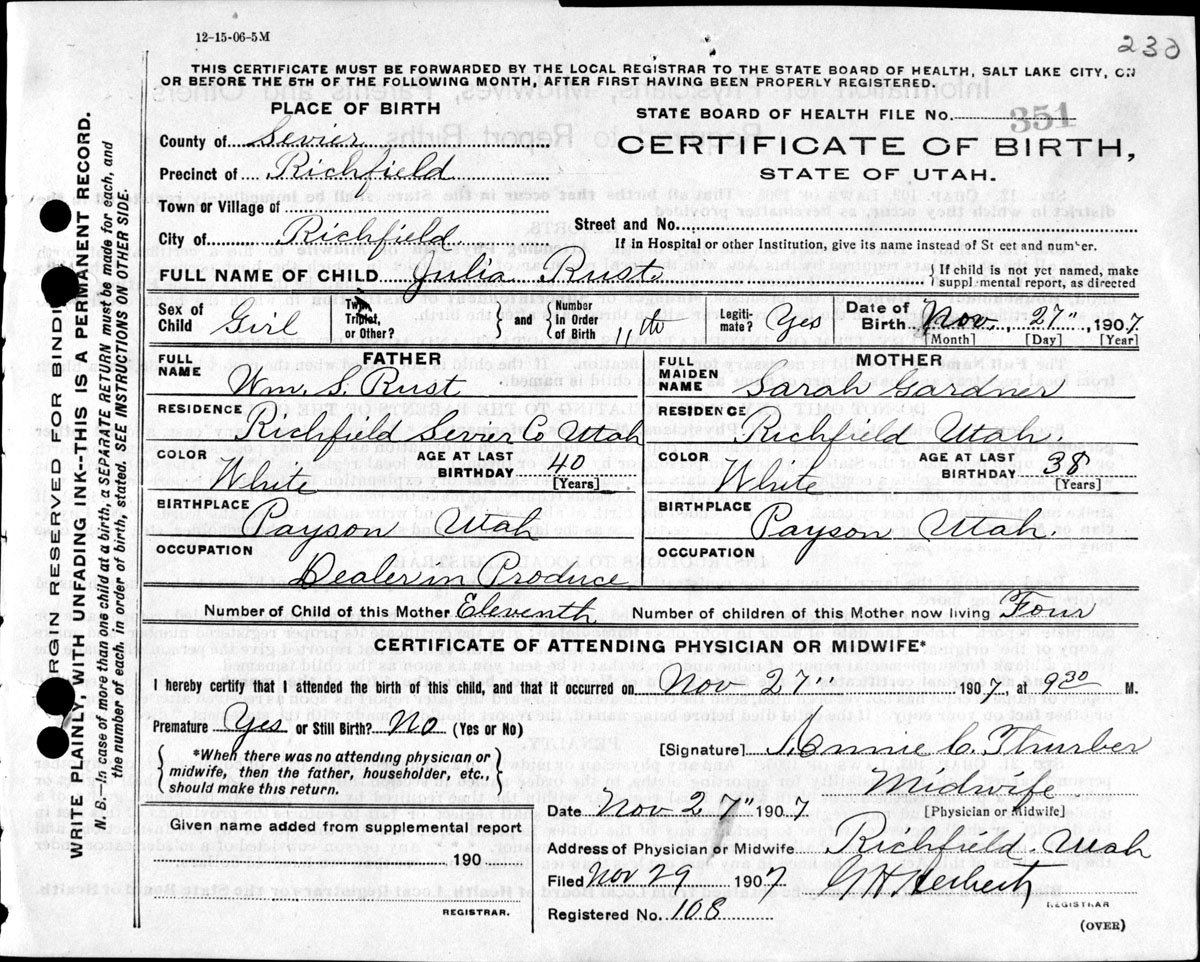 12-15-06-5M
THIS CERTIFICATE MUST BE FORWARDED BY THE LOCAL REGISTRAR TO THE STATE BOARD OF HEALTH, SALT LAKE CITY, ON
OR BEFORE THE 5TH OF THE FOLLOWING MONTH, AFTER FIRST HAVING BEEN PROPERLY REGISTERED.
PLACE OF BIRTH
STATE BOARD OF HEALTH FILE NO. 351
County of Sevier
CERTIFICATE OF BIRTH,
Precinct of Richfield
STATE OF UTAH.
Town or Village of
Street and No.
City of Richfield
If in Hospital or other Institution, give its name instead of St eet and number.
FULL NAME OF CHILD Julia Rust
If child is not yet named, make
supplemental report, as directed
Sex of Child Girl
Twin, Triplet, or Other?
and
Number in Order of Birth 11th
Legitimate? Yes
Date of Birth Nov. 27" 1907
[Month] [Day] [Year]
FATHER
FULL NAME Wm. S. Rust
RESIDENCE Richfield Sevier Co Utah
COLOR White
AGE AT LAST BIRTHDAY 40 [Years]
BIRTHPLACE Payson Utah
OCCUPATION Dealer in Produce
MOTHER
FULL MAIDEN NAME Sarah Gardner
RESIDENCE Richfield Utah.
COLOR White
AGE AT LAST BIRTHDAY 38 [Years]
BIRTHPLACE Payson Utah.
OCCUPATION
Number of Child of this Mother Eleventh Number of children of this Mother now living Four
CERTIFICATE OF ATTENDING PHYSICIAN OR MIDWIFE*
I hereby certify that I attended the birth of this child, and that it occurred on Nov 27" 1907, at 9 30 M.
Premature Yes or Still Birth? No (Yes or No)
*When there was no attending physician or
midwife, then the father, householder, etc.,
should make this return.
[Signature] Annie C. Thurber
Midwife
[Physician or Midwife]
Date Nov 27" 1907
Address of Physician or Midwife Richfield. Utah
Filed Nov 29 1907
REGISTRAR
Registered No. 108
(OVER)
Given name added from supplemental report
190
REGISTRAR.
MARGIN RESERVED FOR BINDING
WRITE PLAINLY, WITH UNFADING INK--THIS IS A PERMANENT RECORD.
N. B.—In case of more than one child at a birth, a SEPARATE RETURN must be made for each, and
the number of each, in order of birth, stated. SEE INSTRUCTIONS ON OTHER SIDE.